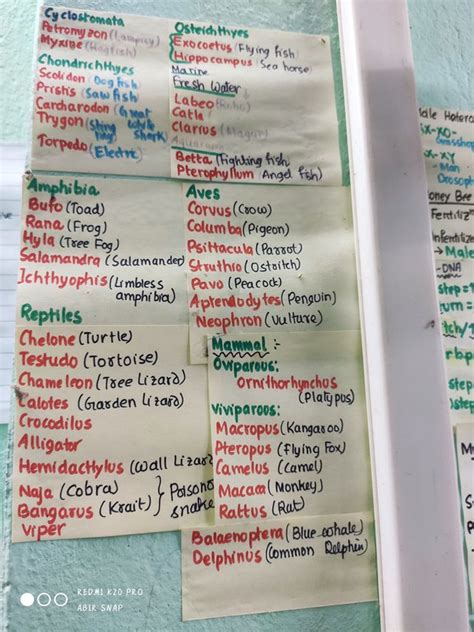 Cyclostomata
Petromyzon (Lamprey)
Myxine (Hagfish)
Chondrichthyes
Scolidon (Dog fish
Pristis (Saw fish)
Carcharodon (Great White Shark)
Trygon (Sting ray)
Torpedo (Electric)
Osteichthyes
Exocoetus (Flying fish)
Hippocampus (Sea horse)
Marine
Fresh Water
Labeo (Rohu)
Catla
Clarius (Magur)
Aquarium
Betta (Fighting fish
Pterophyllum (Angel fish)
Amphibia
Bufo (Toad)
Rana (Frog)
Hyla (Tree Fog)
Salamandra (Salamander)
Ichthyophis (Limbless
amphibia)
Reptiles
Chelone (Turtle)
Testudo (Tortoise)
Chameleon (Tree Lizard)
Calotes (Garden Lizard)
Crocodilus
Alligator
Hemidactylus (Wall Lizard
Naja (Cobra)
Bangarus (Krait)
Viper
Poisono
snake
Aves
Corvus (Crow)
Columba (Pigeon)
Psittacula (Parrot)
Struthio (Ostritch)
Pavo (Peacock)
Aptenodytes (Penguin)
Neophron (Vulture)
Mammal :-
Oviparous:
Ornithorhynchus
(Platypus)
Viviparoos:
Macropus (Kangaroo)
Pteropus (Flying Fox)
Camelus (Camel)
Macaca (Monkey)
Rattus (Rat)
Balaenoptera (Blue whale)
Delphinus (Common Delphin)
ale Hetero
XX-XO-
Grasshop
XX-XY
- Man
- Drosoph
oney Bee
Fertiliz
Unfertilize
→ Male
-DNA
step
REDMI K20 PRO
ABIR SNAP